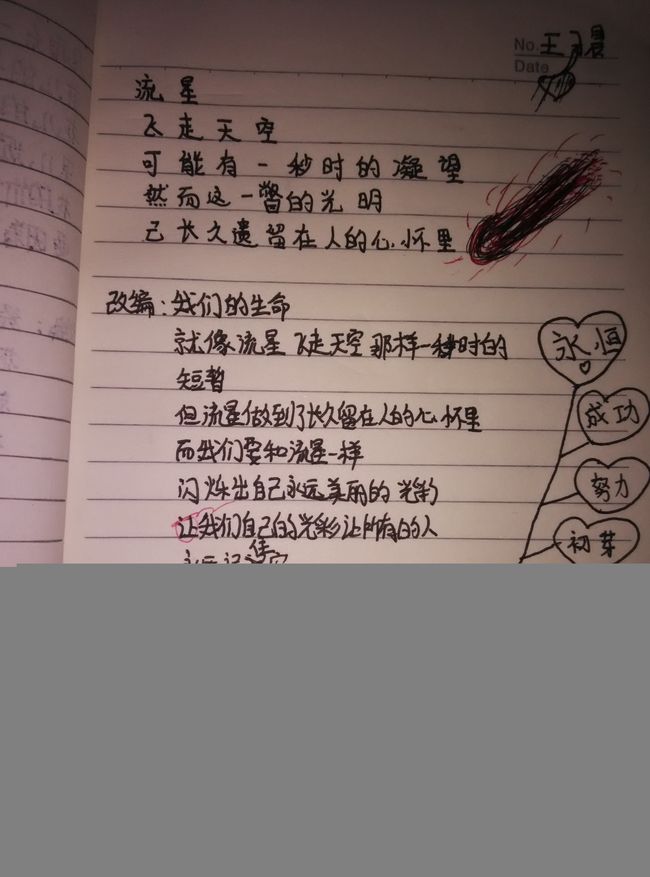 No. 王子晨
Date
流星
飞走天空
可能有一秒时的凝望
然而这一瞥的光明
己长久遗留在人的心怀里
改编:我们的生命
就像流星飞走天空那样一秒时的
短暂
但流星做到了长久留在人的心怀里
而我们要和流星一样
闪烁出自己永远美丽的光彩
让我们自己的光彩让所有的人
永恒
成功
努力
初芽